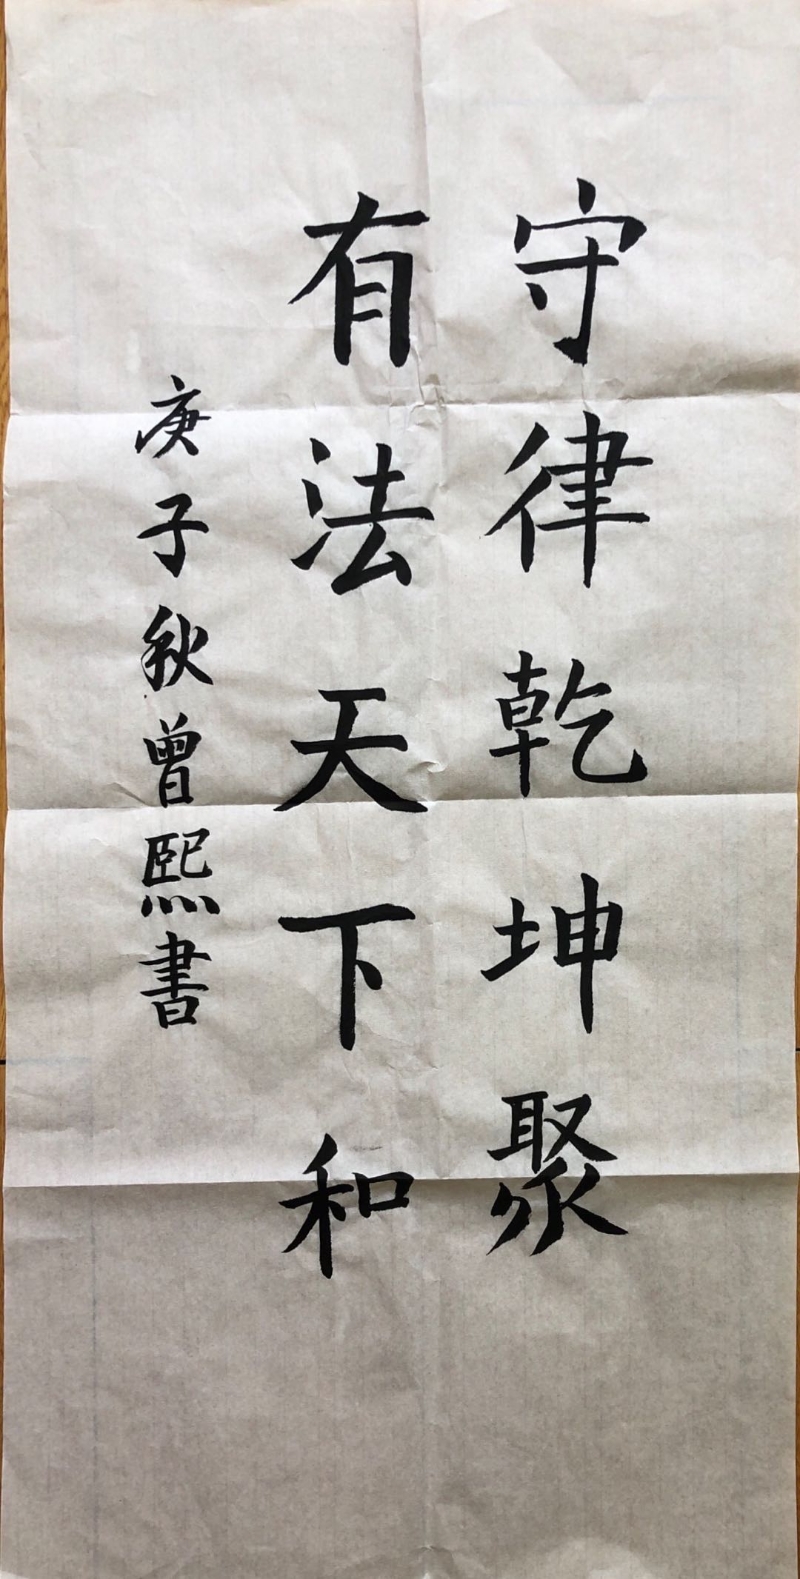 守律乾坤聚
有法天下和
庚子秋曾熙書